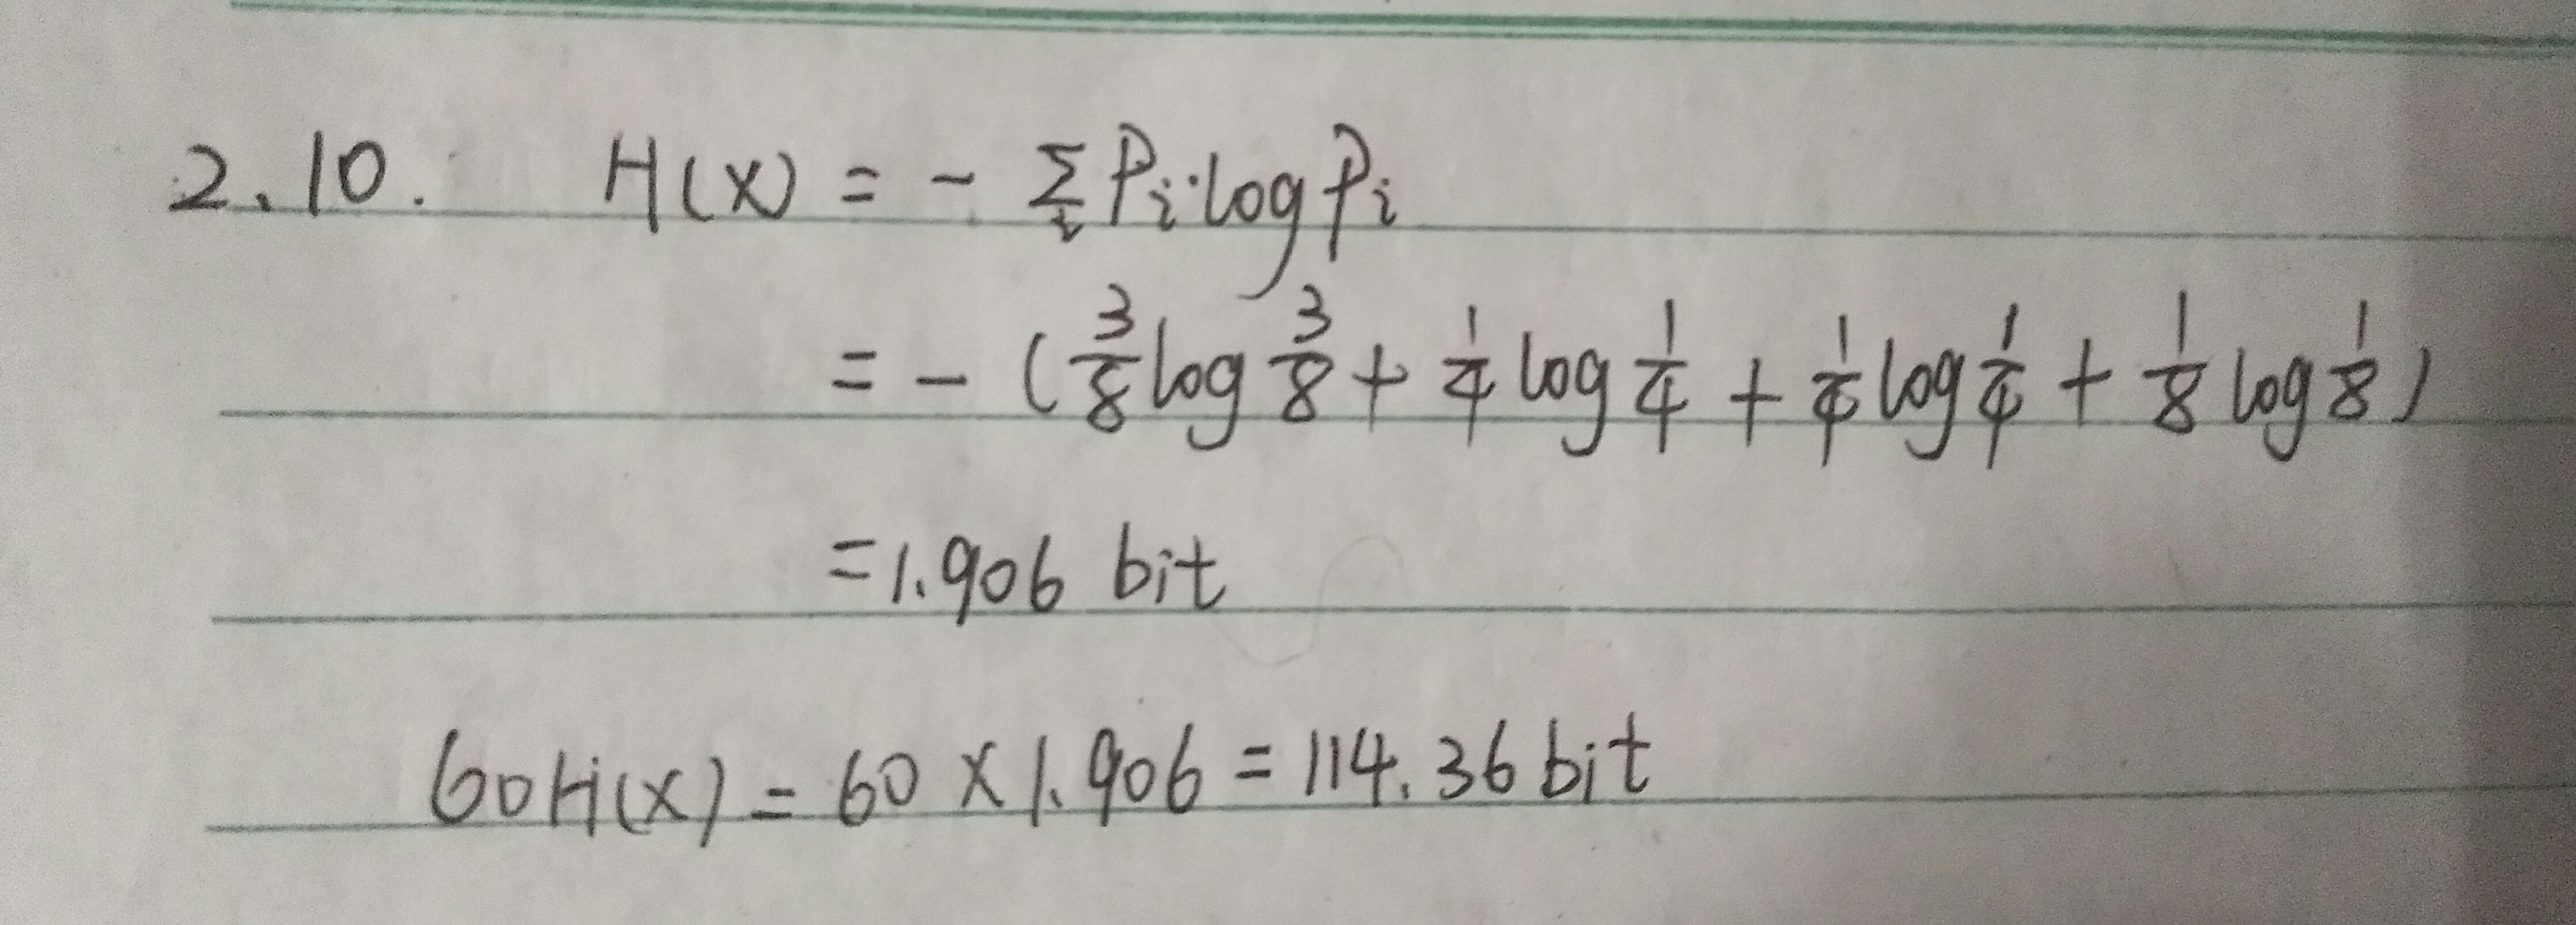 2.10. H(X) = - Σ_i P_i·log P_i
= - (3/8 log 3/8 + 1/4 log 1/4 + 1/4 log 1/4 + 1/8 log 1/8)
= 1.906 bit
60H(X) = 60 × 1.906 = 114.36 bit